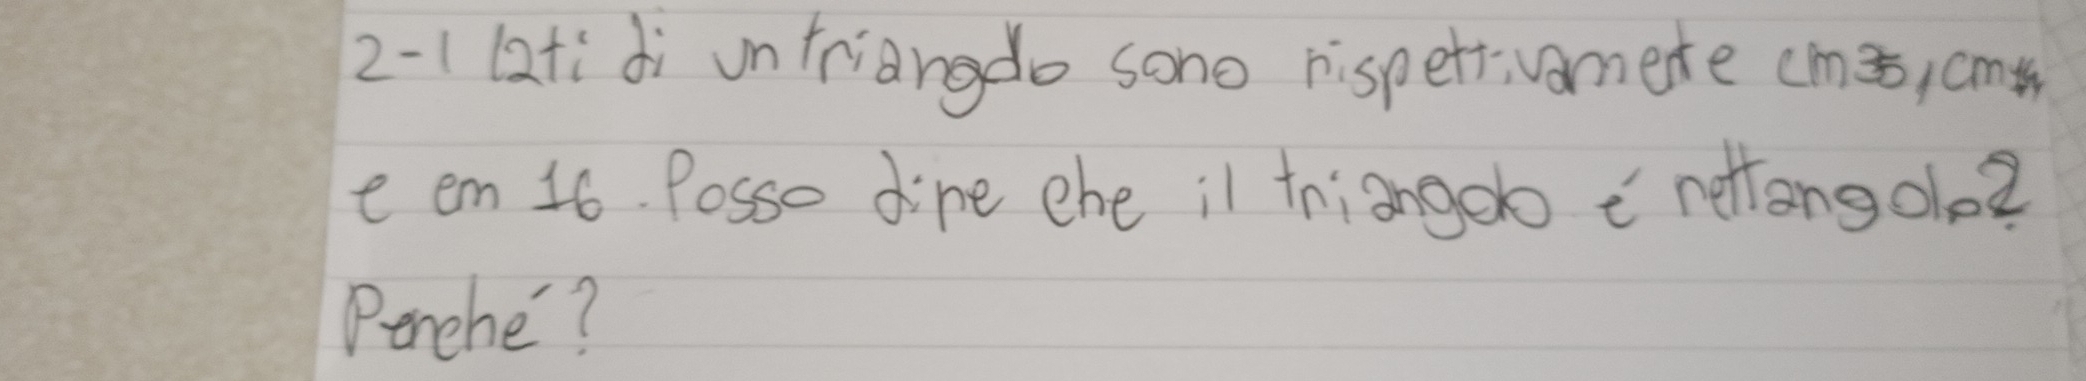 2-I lati di un triangolo sono rispettivamente cm , cm
e cm 16. Posso dire che il triangolo é rettangolo?
Perché?